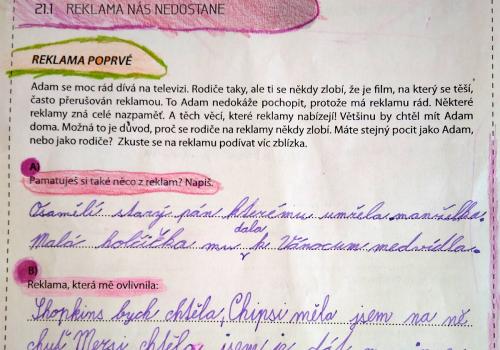 21.1 REKLAMA NÁS NEDOSTANE
REKLAMA POPRVÉ
Adam se moc rád dívá na televizi. Rodiče taky, ale ti se někdy zlobí, že je film, na který se těší,
často přerušován reklamou. To Adam nedokáže pochopit, protože má reklamu rád. Některé
reklamy zná celé nazpaměť. A těch věcí, které reklamy nabízejí! Většinu by chtěl mít Adam
doma. Možná to je důvod, proč se rodiče na reklamy někdy zlobí. Máte stejný pocit jako Adam,
nebo jako rodiče? Zkuste se na reklamu podívat víc zblízka.
A)
Pamatuješ si také něco z reklam? Napiš.
Osamělí starý pán kterému umřela manželka.
Malá holčička mu dala k Vánocum medvídka.
B)
Reklama, která mě ovlivnila:
Shopkins bych chtěla, Chipsi měla jsem na ně
chuť Mersi chtěla jsem je dát